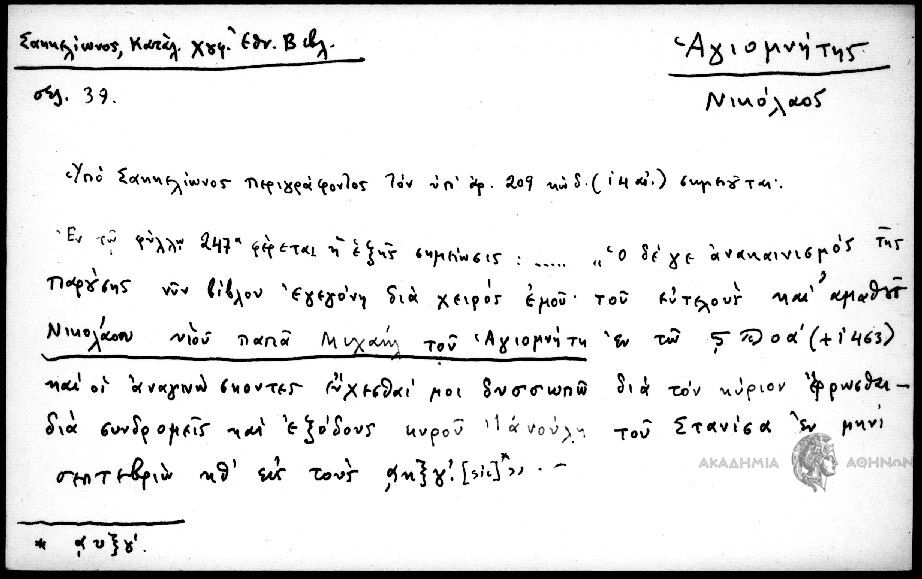 Σακκελίωνος, Κατάλ. χγφ. Ἐθν. Βιβλ.
Ἁγιομνήτης
σελ. 39.
Νικόλαος
Ὑπὸ Σακκελίωνος περιγράφοντος τὸν ὑπ' ἀρ. 209 κώδ. (ι4 αἰ.) σημειοῦται:
Ἐν τῷ φύλλῳ 247α φέρεται ἡ ἑξῆς σημείωσις: ..... „Ὁ δέ γε ἀνακαινισμός τῆς
παρύσης νῦν βίβλου ἐγεγόνη διὰ χειρός ἐμοῦ τοῦ εὐτελοῦς καὶ ἀμαθοῦς
Νικολάου υἱοῦ παπᾶ Μιχαήλ τοῦ Ἁγιομνήτη ἐν τῶ ϛϡοα' (+1463)
καὶ οἱ ἀναγινώσκοντες εὔχεσθαί μοι δυσσωπῶ διὰ τόν κύριον ἔρρωσθαι –
διὰ συνδρομεῖς καὶ ἐξόδους κυροῦ Μανούλη τοῦ Στανίσα ἐν μηνί
σεπτεβρίω κθ' εἰς τοὺς ͵ακξγ'. [sic]*». –
ΑΚΑΔΗΜΙΑ ΑΘΗΝΩΝ
* ͵αυξγ'.